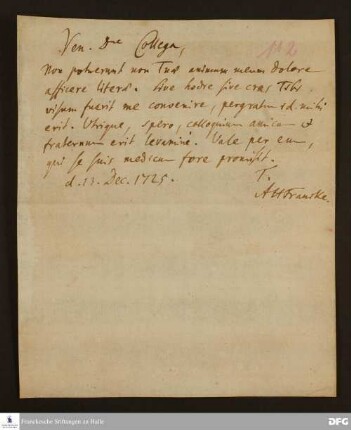 Ven. Dne Collega,
112
Non potuerunt non Tuae animum meum dolore
afficere literae. Sive hodie sive cras Tibi
visum fuerit me convenire, pergratum id mihi
erit. Utrique, spero, colloquium amicum &
fraternum erit levamini. Vale per eum,
qui se suis medicum fore promisit.
d. 13. Dec. 1725.
T.
AHFrancke.
Franckesche Stiftungen zu Halle
DFG